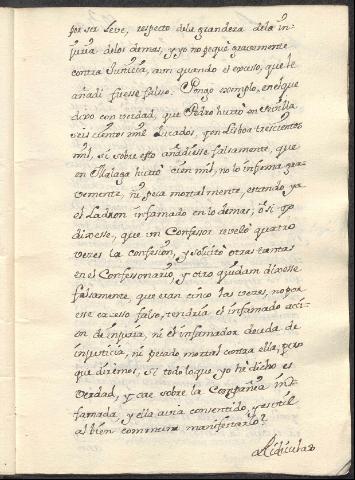 por ser leve, respecto de la grandeza de la in-
juria de los demas, y yo no pequè gravemente
contra Justicia, aun quando el excesso, que le
añadi fuesse falso. Pongo exemplo, en el que
dixo con verdad, que Pedro hurtò en Sevilla
seis cientos mil Ducados, y en Lisboa trescientos
mil, si sobre esto añadiesse falsamente, que
en Malaga hurtò cien mil, no lo infama gra-
vemente, ni peca mortalmente, estando ya
el Ladron infamado en lo demas; ò si yo
dixesse, que un Confessor revelò quatro
veces la confession, y solicitò otras tantas
en el Confessonario, y otro quidam dixesse
falsamente, que eran cinco las veces, no por
esse excesso falso, tendria el infamado acci-
on de injuria, ni el infamador deuda de
injusticia, ni pecado mortal contra ella; pero
que diremos, si todo lo que yo he dicho es
verdad, y cae sobre la Compañia in-
famada, y ella avia consentido, y es util
al bien comun manifestarlo?